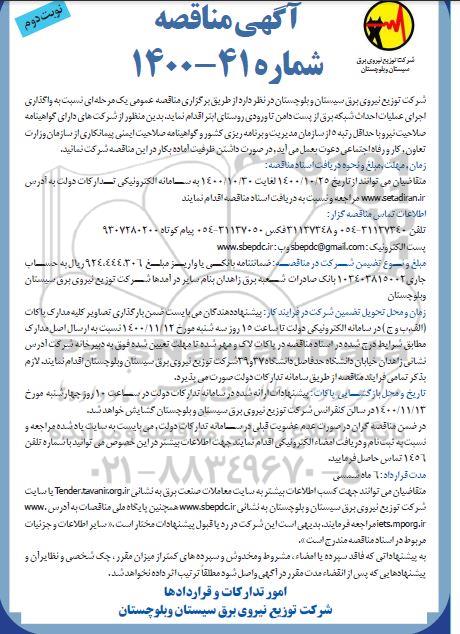 نوبت دوم
آگهی مناقصه
شماره ۴۱-۱۴۰۰
شرکت توزیع نیروی برق
سیستان وبلوچستان
شرکت توزیع نیروی برق سیستان و بلوچستان در نظر دارد از طریق برگزاری مناقصه عمومی یک مرحله‌ای نسبت به واگذاری
اجرای عملیات احداث شبکه برق از پست دامن تا ورودی روستای ابتر اقدام نماید. بدین منظور از شرکت های دارای گواهینامه
صلاحیت نیرو با حداقل رتبه ۵ از سازمان مدیریت و برنامه ریزی کشور و گواهینامه صلاحیت ایمنی پیمانکاری از سازمان وزارت
تعاون، کار و رفاه اجتماعی دعوت بعمل می آید. در صورت داشتن ظرفیت آماده بکار در این مناقصه شرکت نمائید.
زمان، مهلت، مبلغ و نحوه دریافت اسناد مناقصه:
متقاضیان می توانند از تاریخ ۱۴۰۰/۱۰/۲۵ لغایت ۱۴۰۰/۱۰/۳۰ به سامانه الکترونیکی تدارکات دولت به آدرس
www.setadiran.ir مراجعه و نسبت به دریافت اسناد مناقصه اقدام نمایند
اطلاعات تماس مناقصه گزار:
تلفن ۳۱۱۳۷۲۴۰-۰۵۴ و ۳۱۱۳۷۲۴۸ فکس ۳۱۱۳۷۰۵۰-۰۵۴ پیام کوتاه ۹۳۰۷۲۸۰۲۰۰
پست الکترونیک: sbepdc@gmail.com وب: www.sbepdc.ir
مبلغ و نوع تضمین شرکت در مناقصه: ضمانتنامه بانکی یا واریز مبلغ ۹۲۴,۴۴۴,۳۰۶ ریال به حساب
جاری ۰۱۰۳۴۰۳۸۱۵۰۰۲ بانک صادرات شعبه برق زاهدان بنام سایر درآمدها شرکت توزیع نیروی برق سیستان
وبلوچستان
زمان و محل تحویل تضمین شرکت در فرایند کار: پیشنهاددهندگان می بایست ضمن بارگذاری تصاویر کلیه مدارک پاکات
(الف،ب و ج) در سامانه الکترونیکی دولت تا ساعت ۱۵ روز سه شنبه مورخ ۱۴۰۰/۱۱/۱۲ نسبت به ارسال اصل مدارک
مطابق شرایط درج شده در اسناد مناقصه در پاکات لاک و مهر شده تا مهلت تعیین شده فوق به دبیرخانه شرکت آدرس
نشانی زاهدان خیابان دانشگاه حدفاصل دانشگاه ۳۷ و ۳۹ شرکت توزیع نیروی برق سیستان وبلوچستان اقدام نمایند. لازم
بذکر تمامی فرایند مناقصه از طریق سامانه تدارکات دولت صورت می پذیرد.
تاریخ و محل بازگشایی پاکات: پیشنهادات ارائه شده در سامانه تدارکات دولت در ساعت ۱۰ روز چهارشنبه مورخ
۱۴۰۰/۱۱/۱۳ در سالن کنفرانس شرکت توزیع نیروی برق سیستان و بلوچستان گشایش خواهد شد.
در ضمن مناقصه گران در صورت عدم عضویت قبلی در سامانه تدارکات دولت، می بایست به سایت یاد شده مراجعه و
نسبت به ثبت نام و دریافت امضاء الکترونیکی اقدام نمایند جهت اطلاعات بیشتر در این خصوص می توانید با شماره تلفن
۱۴۵۶ تماس حاصل فرمایید.
مدت قرارداد: ۶ ماه شمسی
متقاضیان می توانند جهت کسب اطلاعات بیشتر به سایت معاملات صنعت برق به نشانی Tender.tavanir.org.ir یا سایت
شرکت توزیع نیروی برق سیستان و بلوچستان به نشانی www.sbepdc.ir همچنین پایگاه ملی مناقصات به آدرس www.
iets.mporg.ir مراجعه فرمایند. بدیهی است این شرکت در رد یا قبول پیشنهادات مختار است.« سایر اطلاعات و جزئیات
مربوط در اسناد مناقصه مندرج است ».
به پیشنهاداتی که فاقد سپرده یا امضاء، مشروط و مخدوش و سپرده های کمتر از میزان مقرر، چک شخصی و نظایر آن و
پیشنهادهایی که پس از انقضاء مدت مقرر در آگهی واصل شود مطلقاً ترتیب اثر داده نخواهد شد.
امور تدارکات و قراردادها
شرکت توزیع نیروی برق سیستان وبلوچستان
۰۲۱-۸۸۳۴۹۶۷۰-۵